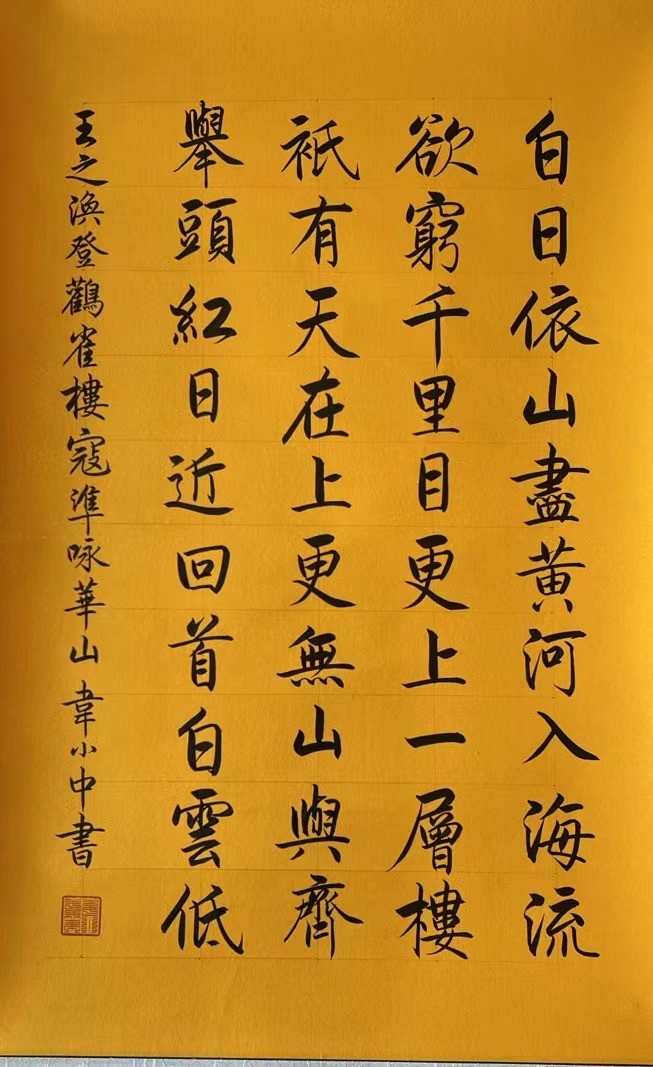 白日依山盡黃河入海流
欲窮千里目更上一層樓
祇有天在上更無山與齊
舉頭紅日近回首白雲低
王之渙登鸛雀樓寇準咏華山 韋小中書